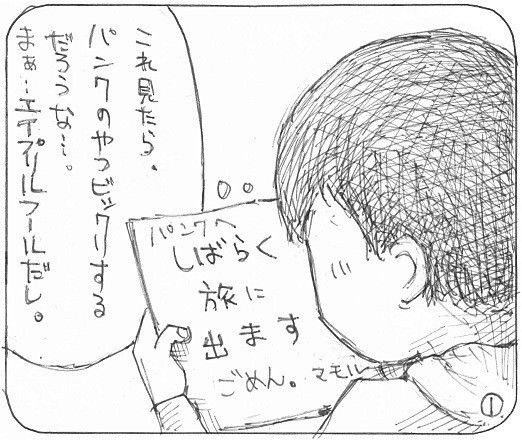 これ見たら、
パンクのやつビックリする
だろうな…。
まぁ…エイプリルフールだし。
パンクへ
しばらく
旅に
出ます
ごめん。マモル
①